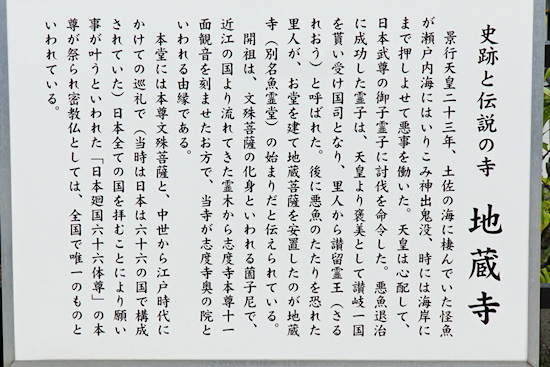 史跡と伝説の寺　地蔵寺
景行天皇二十三年、土佐の海に棲んでいた怪魚
が瀬戸内海にはいりこみ神出鬼没、時には海岸に
まで押しよせて悪事を働いた。天皇は心配して、
日本武尊の御子霊子に討伐を命令した。悪魚退治
に成功した霊子は、天皇より褒美として讃岐一国
を貰い受け国司となり、里人から讃留霊王（さる
れおう）と呼ばれた。後に悪魚のたたりを恐れた
里人が、お堂を建て地蔵菩薩を安置したのが地蔵
寺（別名魚霊堂）の始まりだと伝えられている。
開祖は、文殊菩薩の化身といわれる薗子尼で、
近江の国より流れてきた霊木から志度寺本尊十一
面観音を刻ませたお方で、当寺が志度寺奥の院と
いわれる由縁である。
本堂には本尊文殊菩薩と、中世から江戸時代に
かけての巡礼で（当時は日本は六十六の国で構成
されていた）日本全ての国を拝むことにより願い
事が叶うといわれた「日本廻国六十六体尊」の本
尊が祭られ密教仏としては、全国で唯一のものと
いわれている。